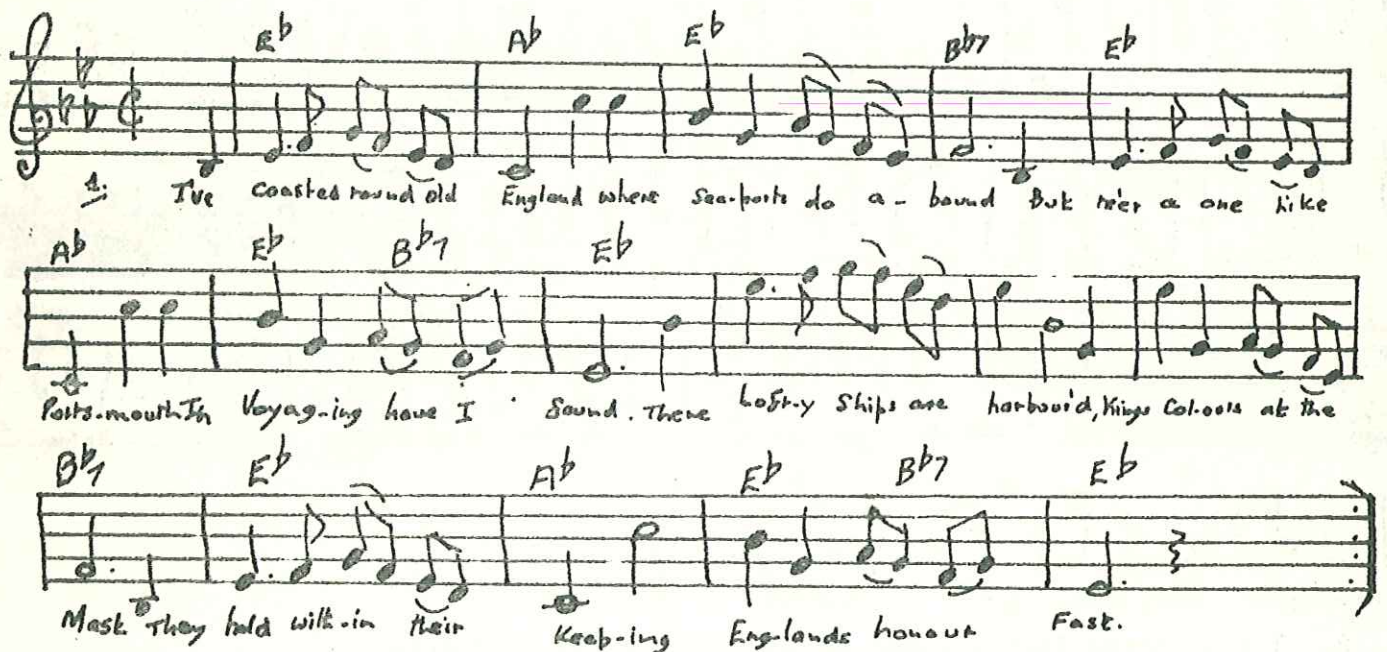 E♭ A♭ E♭ B♭7 E♭
1. I've coasted round old England where Sea-ports do a-bound But ne'er a one Like
A♭ E♭ B♭7 E♭
Ports-mouth In Voyag-ing have I Sound. There Lofty Ships are harbour'd, Kings Colours at the
B♭7 E♭ A♭ E♭ B♭7 E♭
Mast They hold with-in their Keep-ing Eng-lands honour Fast.